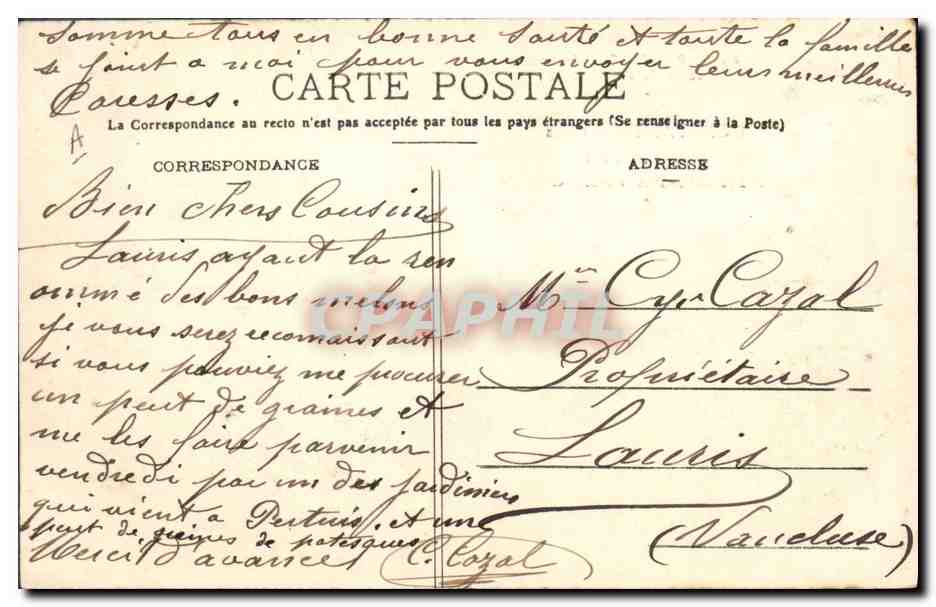 somme tous en bonne santé et toute la famille
se joint a moi pour vous envoyer leurs meilleures
Caresses.
CARTE POSTALE
La Correspondance au recto n'est pas acceptée par tous les pays étrangers (Se renseigner à la Poste)
A
CORRESPONDANCE
Bien chers Cousins
Lauris ayant la ren
ommé des bons melons
je vous serez reconaissant
si vous pouviez me procurer
un peut de graines et
me les faire parvenir
vendredi par un des jardiniers
qui vient a Pertuis. et une
peut de graines de
Merci d'avances C. Cazal
ADRESSE
Mr Cazal
Propriétaire
Lauris
(Vaucluse)
CPAPHIL